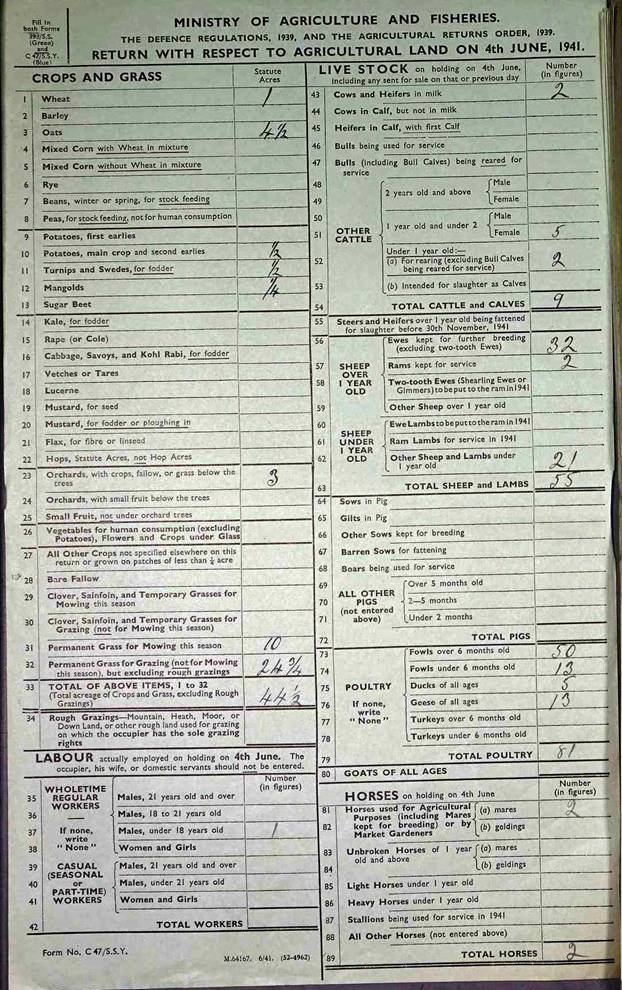 Fill in
both Forms
393/S.S.
(Green)
and
C 47/S.S.Y.
(Blue)
MINISTRY OF AGRICULTURE AND FISHERIES.
THE DEFENCE REGULATIONS, 1939, AND THE AGRICULTURAL RETURNS ORDER, 1939.
RETURN WITH RESPECT TO AGRICULTURAL LAND ON 4th JUNE, 1941.
CROPS AND GRASS
Statute
Acres
1 Wheat 1
2 Barley
3 Oats 4½
4 Mixed Corn with Wheat in mixture
5 Mixed Corn without Wheat in mixture
6 Rye
7 Beans, winter or spring, for stock feeding
8 Peas, for stock feeding, not for human consumption
9 Potatoes, first earlies
10 Potatoes, main crop and second earlies ½
11 Turnips and Swedes, for fodder ½
12 Mangolds ¼
13 Sugar Beet
14 Kale, for fodder
15 Rape (or Cole)
16 Cabbage, Savoys, and Kohl Rabi, for fodder
17 Vetches or Tares
18 Lucerne
19 Mustard, for seed
20 Mustard, for fodder or ploughing in
21 Flax, for fibre or linseed
22 Hops, Statute Acres, not Hop Acres
23 Orchards, with crops, fallow, or grass below the
trees 3
24 Orchards, with small fruit below the trees
25 Small Fruit, not under orchard trees
26 Vegetables for human consumption (excluding
Potatoes), Flowers and Crops under Glass
27 All Other Crops not specified elsewhere on this
return or grown on patches of less than ¼ acre
28 Bare Fallow
29 Clover, Sainfoin, and Temporary Grasses for
Mowing this season
30 Clover, Sainfoin, and Temporary Grasses for
Grazing (not for Mowing this season)
31 Permanent Grass for Mowing this season 10
32 Permanent Grass for Grazing (not for Mowing
this season), but excluding rough grazings 24¾
33 TOTAL OF ABOVE ITEMS, 1 to 32
(Total acreage of Crops and Grass, excluding Rough
Grazings) 44½
34 Rough Grazings—Mountain, Heath, Moor, or
Down Land, or other rough land used for grazing
on which the occupier has the sole grazing
rights
LABOUR actually employed on holding on 4th June. The
occupier, his wife, or domestic servants should not be entered.
Number
(in figures)
WHOLETIME
REGULAR
WORKERS
If none,
write
"None"
35 Males, 21 years old and over
36 Males, 18 to 21 years old
37 Males, under 18 years old 1
38 Women and Girls
CASUAL
(SEASONAL
or
PART-TIME)
WORKERS
39 Males, 21 years old and over
40 Males, under 21 years old
41 Women and Girls
42 TOTAL WORKERS
Form No. C 47/S.S.Y.
M.64167. 6/41. (52-4962)
LIVE STOCK on holding on 4th June,
including any sent for sale on that or previous day
Number
(in figures)
43 Cows and Heifers in milk 2
44 Cows in Calf, but not in milk
45 Heifers in Calf, with first Calf
46 Bulls being used for service
47 Bulls (including Bull Calves) being reared for
service
OTHER
CATTLE
2 years old and above
48 Male
49 Female
1 year old and under 2
50 Male
51 Female 5
Under 1 year old:—
52 (a) For rearing (excluding Bull Calves
being reared for service) 2
53 (b) Intended for slaughter as Calves
54 TOTAL CATTLE and CALVES 9
55 Steers and Heifers over 1 year old being fattened
for slaughter before 30th November, 1941
SHEEP
OVER
1 YEAR
OLD
56 Ewes kept for further breeding
(excluding two-tooth Ewes) 32
57 Rams kept for service 2
58 Two-tooth Ewes (Shearling Ewes or
Gimmers) to be put to the ram in 1941
59 Other Sheep over 1 year old
SHEEP
UNDER
1 YEAR
OLD
60 Ewe Lambs to be put to the ram in 1941
61 Ram Lambs for service in 1941
62 Other Sheep and Lambs under
1 year old 21
63 TOTAL SHEEP and LAMBS 55
64 Sows in Pig
65 Gilts in Pig
66 Other Sows kept for breeding
67 Barren Sows for fattening
68 Boars being used for service
ALL OTHER
PIGS
(not entered
above)
69 Over 5 months old
70 2—5 months
71 Under 2 months
72 TOTAL PIGS
POULTRY
If none,
write
"None"
73 Fowls over 6 months old 50
74 Fowls under 6 months old 13
75 Ducks of all ages 5
76 Geese of all ages 13
77 Turkeys over 6 months old
78 Turkeys under 6 months old
79 TOTAL POULTRY 81
80 GOATS OF ALL AGES
HORSES on holding on 4th June
Number
(in figures)
Horses used for Agricultural
Purposes (including Mares
kept for breeding) or by
Market Gardeners
81 (a) mares 2
82 (b) geldings
Unbroken Horses of 1 year
old and above
83 (a) mares
84 (b) geldings
85 Light Horses under 1 year old
86 Heavy Horses under 1 year old
87 Stallions being used for service in 1941
88 All Other Horses (not entered above)
89 TOTAL HORSES 2